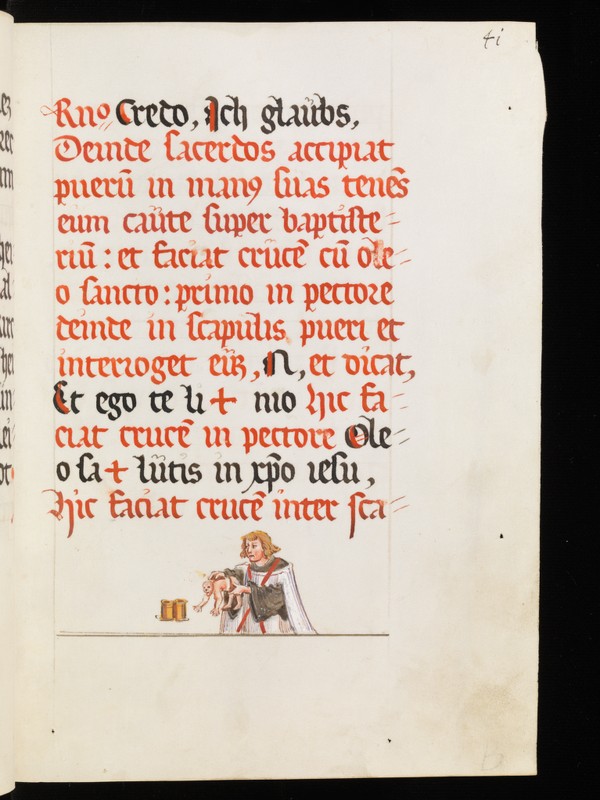 41
Rn⁹ Credo, Ich glaübs,
Deinde sacerdos accipiat
puerū in man⁹ suas tenēs
eum caute super baptiste⸗
riū : et faciat crucē cū ole⸗
o sancto : primo in pectore
deinde in scapulis pueri et
interroget eiꝰ, N, et dicat,
Et ego te li + nio hic fa⸗
ciat crucē in pectore Ole⸗
o sa + lūtis in xp̄o iesu,
Hic faciat crucē inter sca⸗